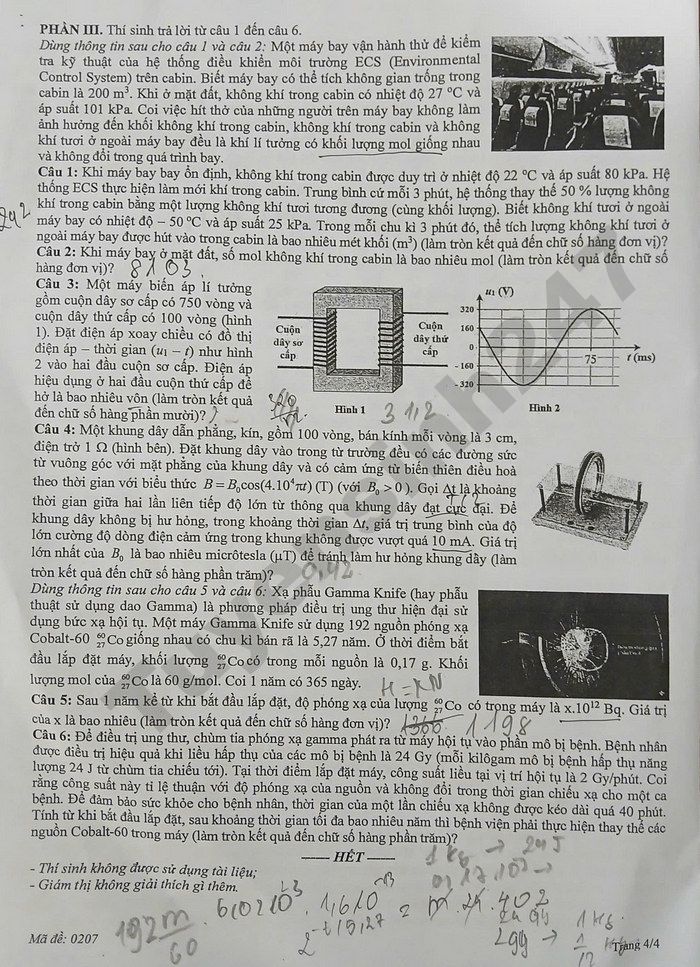 PHẦN III. Thí sinh trả lời từ câu 1 đến câu 6.
Dùng thông tin sau cho câu 1 và câu 2: Một máy bay vận hành thử để kiểm
tra kỹ thuật của hệ thống điều khiển môi trường ECS (Environmental
Control System) trên cabin. Biết máy bay có thể tích không gian trống trong
cabin là 200 m³. Khi ở mặt đất, không khí trong cabin có nhiệt độ 27 °C và
áp suất 101 kPa. Coi việc hít thở của những người trên máy bay không làm
ảnh hưởng đến khối không khí trong cabin, không khí trong cabin và không
khí tươi ở ngoài máy bay đều là khí lí tưởng có khối lượng mol giống nhau
và không đổi trong quá trình bay.
Câu 1: Khi máy bay bay ổn định, không khí trong cabin được duy trì ở nhiệt độ 22 °C và áp suất 80 kPa. Hệ
thống ECS thực hiện làm mới khí trong cabin. Trung bình cứ mỗi 3 phút, hệ thống thay thế 50 % lượng không
khí trong cabin bằng một lượng không khí tươi tương đương (cùng khối lượng). Biết không khí tươi ở ngoài
máy bay có nhiệt độ – 50 °C và áp suất 25 kPa. Trong mỗi chu kì 3 phút đó, thể tích lượng không khí tươi ở
ngoài máy bay được hút vào trong cabin là bao nhiêu mét khối (m³) (làm tròn kết quả đến chữ số hàng đơn vị)?
242
Câu 2: Khi máy bay ở mặt đất, số mol không khí trong cabin là bao nhiêu mol (làm tròn kết quả đến chữ số
hàng đơn vị)? 8103
Câu 3: Một máy biến áp lí tưởng
gồm cuộn dây sơ cấp có 750 vòng và
cuộn dây thứ cấp có 100 vòng (hình
1). Đặt điện áp xoay chiều có đồ thị
điện áp – thời gian (u₁ – t) như hình
2 vào hai đầu cuộn sơ cấp. Điện áp
hiệu dụng ở hai đầu cuộn thứ cấp để
hở là bao nhiêu vôn (làm tròn kết quả
đến chữ số hàng phần mười)?
Cuộn
dây sơ
cấp
Cuộn
dây thứ
cấp
Hình 1
31,2
u₁ (V)
320
160
0
- 160
- 320
75
t (ms)
Hình 2
Câu 4: Một khung dây dẫn phẳng, kín, gồm 100 vòng, bán kính mỗi vòng là 3 cm,
điện trở 1 Ω (hình bên). Đặt khung dây vào trong từ trường đều có các đường sức
từ vuông góc với mặt phẳng của khung dây và có cảm ứng từ biến thiên điều hoà
theo thời gian với biểu thức B = B₀cos(4.10⁴πt) (T) (với B₀ > 0). Gọi Δt là khoảng
thời gian giữa hai lần liên tiếp độ lớn từ thông qua khung dây đạt cực đại. Để
khung dây không bị hư hỏng, trong khoảng thời gian Δt, giá trị trung bình của độ
lớn cường độ dòng điện cảm ứng trong khung không được vượt quá 10 mA. Giá trị
lớn nhất của B₀ là bao nhiêu micrôtesla (μT) để tránh làm hư hỏng khung dây (làm
tròn kết quả đến chữ số hàng phần trăm)?
0,42
Dùng thông tin sau cho câu 5 và câu 6: Xạ phẫu Gamma Knife (hay phẫu
thuật sử dụng dao Gamma) là phương pháp điều trị ung thư hiện đại sử
dụng bức xạ hội tụ. Một máy Gamma Knife sử dụng 192 nguồn phóng xạ
Cobalt-60 ⁶⁰₂₇Co giống nhau có chu kì bán rã là 5,27 năm. Ở thời điểm bắt
đầu lắp đặt máy, khối lượng ⁶⁰₂₇Co có trong mỗi nguồn là 0,17 g. Khối
lượng mol của ⁶⁰₂₇Co là 60 g/mol. Coi 1 năm có 365 ngày.
H = λN
Câu 5: Sau 1 năm kể từ khi bắt đầu lắp đặt, độ phóng xạ của lượng ⁶⁰₂₇Co có trong máy là x.10¹² Bq. Giá trị
của x là bao nhiêu (làm tròn kết quả đến chữ số hàng đơn vị)? 1366 1198
Câu 6: Để điều trị ung thư, chùm tia phóng xạ gamma phát ra từ máy hội tụ vào phần mô bị bệnh. Bệnh nhân
được điều trị hiệu quả khi liều hấp thụ của các mô bị bệnh là 24 Gy (mỗi kilôgam mô bị bệnh hấp thụ năng
lượng 24 J từ chùm tia chiếu tới). Tại thời điểm lắp đặt máy, công suất liều tại vị trí hội tụ là 2 Gy/phút. Coi
rằng công suất này tỉ lệ thuận với độ phóng xạ của nguồn và không đổi trong thời gian chiếu xạ cho một ca
bệnh. Để đảm bảo sức khỏe cho bệnh nhân, thời gian của một lần chiếu xạ không được kéo dài quá 40 phút.
Tính từ khi bắt đầu lắp đặt, sau khoảng thời gian tối đa bao nhiêu năm thì bệnh viện phải thực hiện thay thế các
nguồn Cobalt-60 trong máy (làm tròn kết quả đến chữ số hàng phần trăm)?
------ HẾT ------
- Thí sinh không được sử dụng tài liệu;
- Giám thị không giải thích gì thêm.
1 kg → 24 J
Mã đề: 0207
Trang 4/4
Tuyensinh247